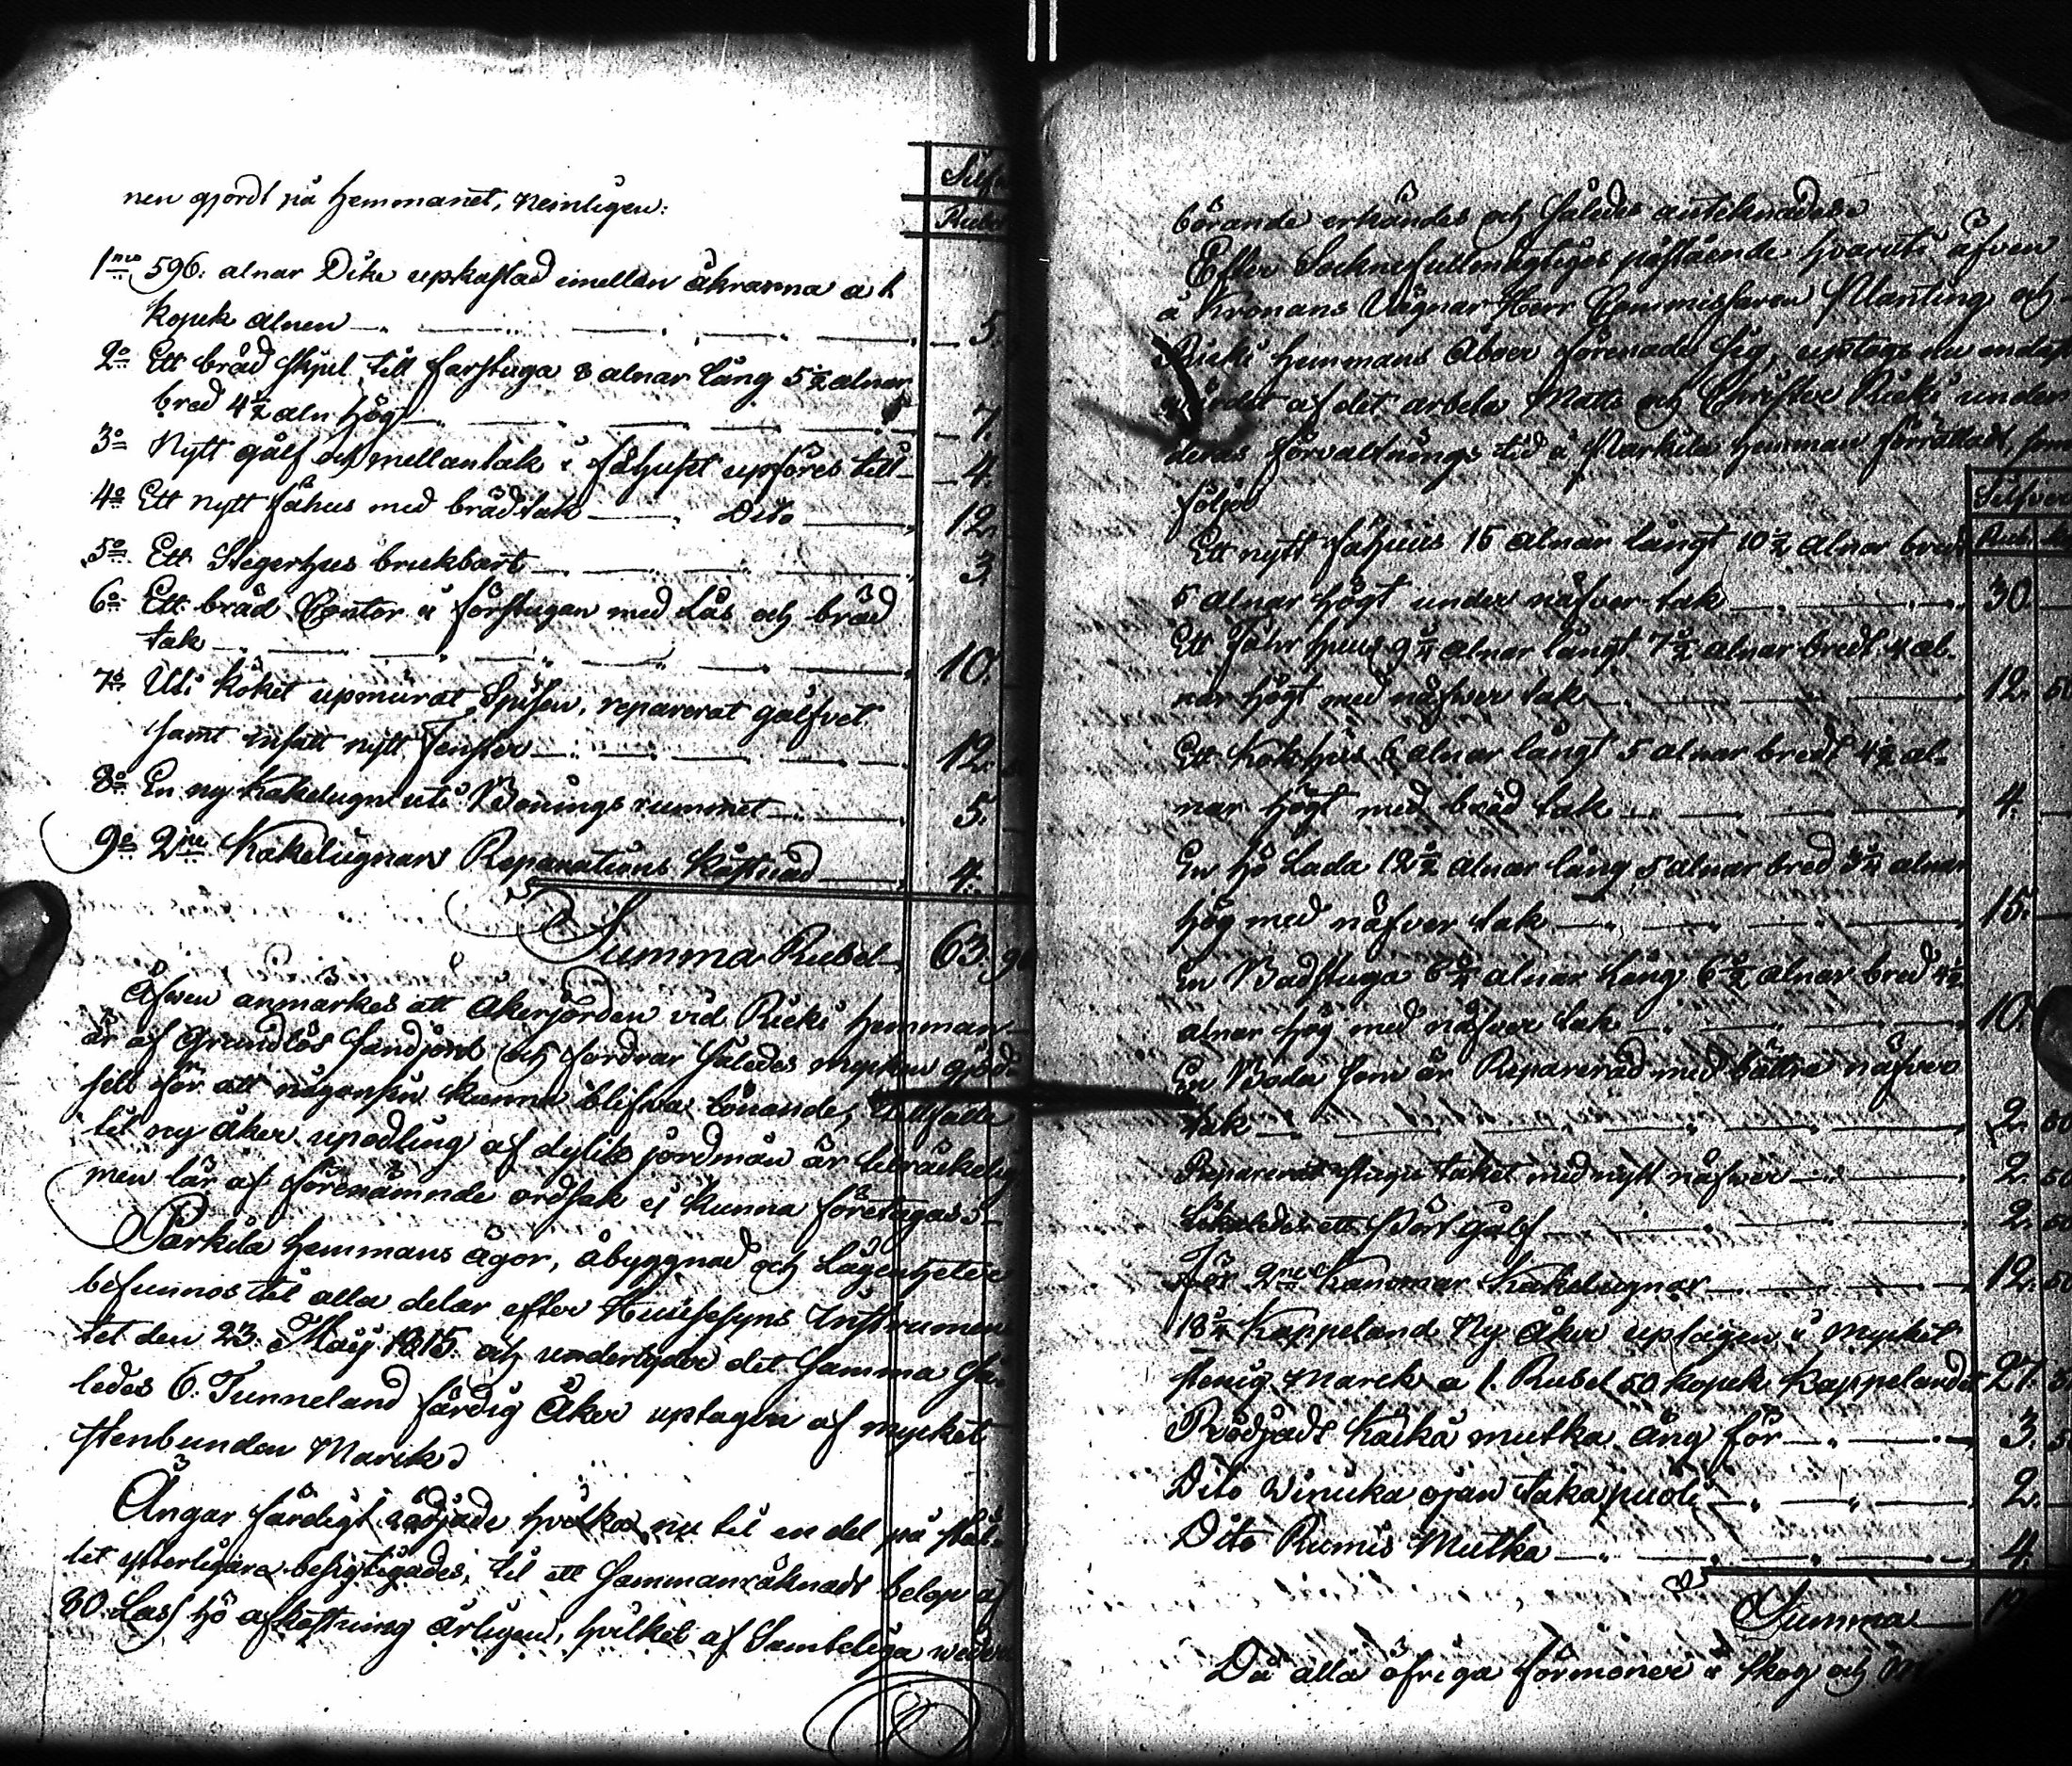 Silf
Rubel
nen gjordt på Hemmanet, Nemligen:
1mo 596: alnar Dike upkastad emellan åkrarna a 1.
kopek alnen 5.
2o Ett bräd skjul till farstuga 8 alnar lång 5 1/2 alnar
bred 4 1/2 aln hög 7.
3o Nytt gålf och mellantak i fähuset upföres till 4.
4o Ett nytt fähus med brädtak Dito 12.
5o Ett Stegerhus brukbart 3.
6o Ett bräd Contor i förstugan med Lås och bräd
tak 10.
7o Uti köket upmurat Spisen, reparerat gålfvet
samt insatt nytt Fenster 12.
8o En ny Kakelugn uti Bonings rummet 5.
9o 2ne Kakelugnars Reparations Kåstnad 4.
Summa Rubel 63. 9
Äfwen anmärkes att Åkerjorden vid Ricki Hemman
är af Grundlös sandjord och fordrar således mycken gjöd-
sell för att någonsin kunna blifwa lönande,
til ny åker upodling af dylik jordmån är tilräckelig
men lär af förenämnde ordsak ej kunna företagas.
Parkila Hemmans ägor, åbyggnad och Lägenheter
befunnos til alla delar efter Huusesyns Instrumen
tet den 23. Maij 1815. och undertyder det samma så-
ledes 6. Tunneland färdig Åker uptagen af mycket
stenbunden Marck
Ängar färdigt rödjade hvilka nu til en del på stäl-
let ytterligare besigtigades, til ett sammanräknadt belop af
80. Lass hö afkastning årligen, hvilket af Samteliga wederbörande erkändes och således antecknades.
Efter Sockne fullmägtiges påstående hvaruti äfven
å Kronans Vägnar Herr Commissarien Planting och
Ricki Hemmans Åboer förenade sig, uptogs nu endast
värdet af det arbete Matts och Christer Ricki under
deras förvaltnings tid å Parkila Hemman förrättadt, som
följer
Silfver
Rub.
Ett nytt fähuus 15 alnar långt 10 1/2 alnar bredt
5 alnar högt under näfver tak 30.
Ett Fåhr huus 9 1/4 alnar långt 7 1/2 alnar bredt 4 al-
nar högt med näfwer tak 12. 5
Ett Kok hus 6 alnar långt 5 alnar bredt 4 1/2 al-
nar högt med bräd tak 4.
En hö Lada 12 1/2 alnar lång 5 alnar bred 3 1/2 alnar
hög med näfver tak 15.
En Badstuga 6 1/2 alnar lång 6 1/2 alnar bred 4 1/2
alnar hög med näfver tak 10.
En Boda som är Reparerad med bättre näfver
tak 2. 50
Reparerat stugu taket med nytt näfwer 2. 50
Likaledes ett Pört gålf 2. 50
För 2ne Kammar Kakelugnar 12. 50
18 1/4 Kappeland Ny Åker uptagen i mycket
stenig Marck a 1. Rubel 50 kopek Kappelandet 27.
Rödjadt Kaikå mutka äng för 3. 5
Dito Winuka ojan taka puoli 2.
Dito Rumis Mutka 4.
Summa
Då alla öfriga förmoner i skog och